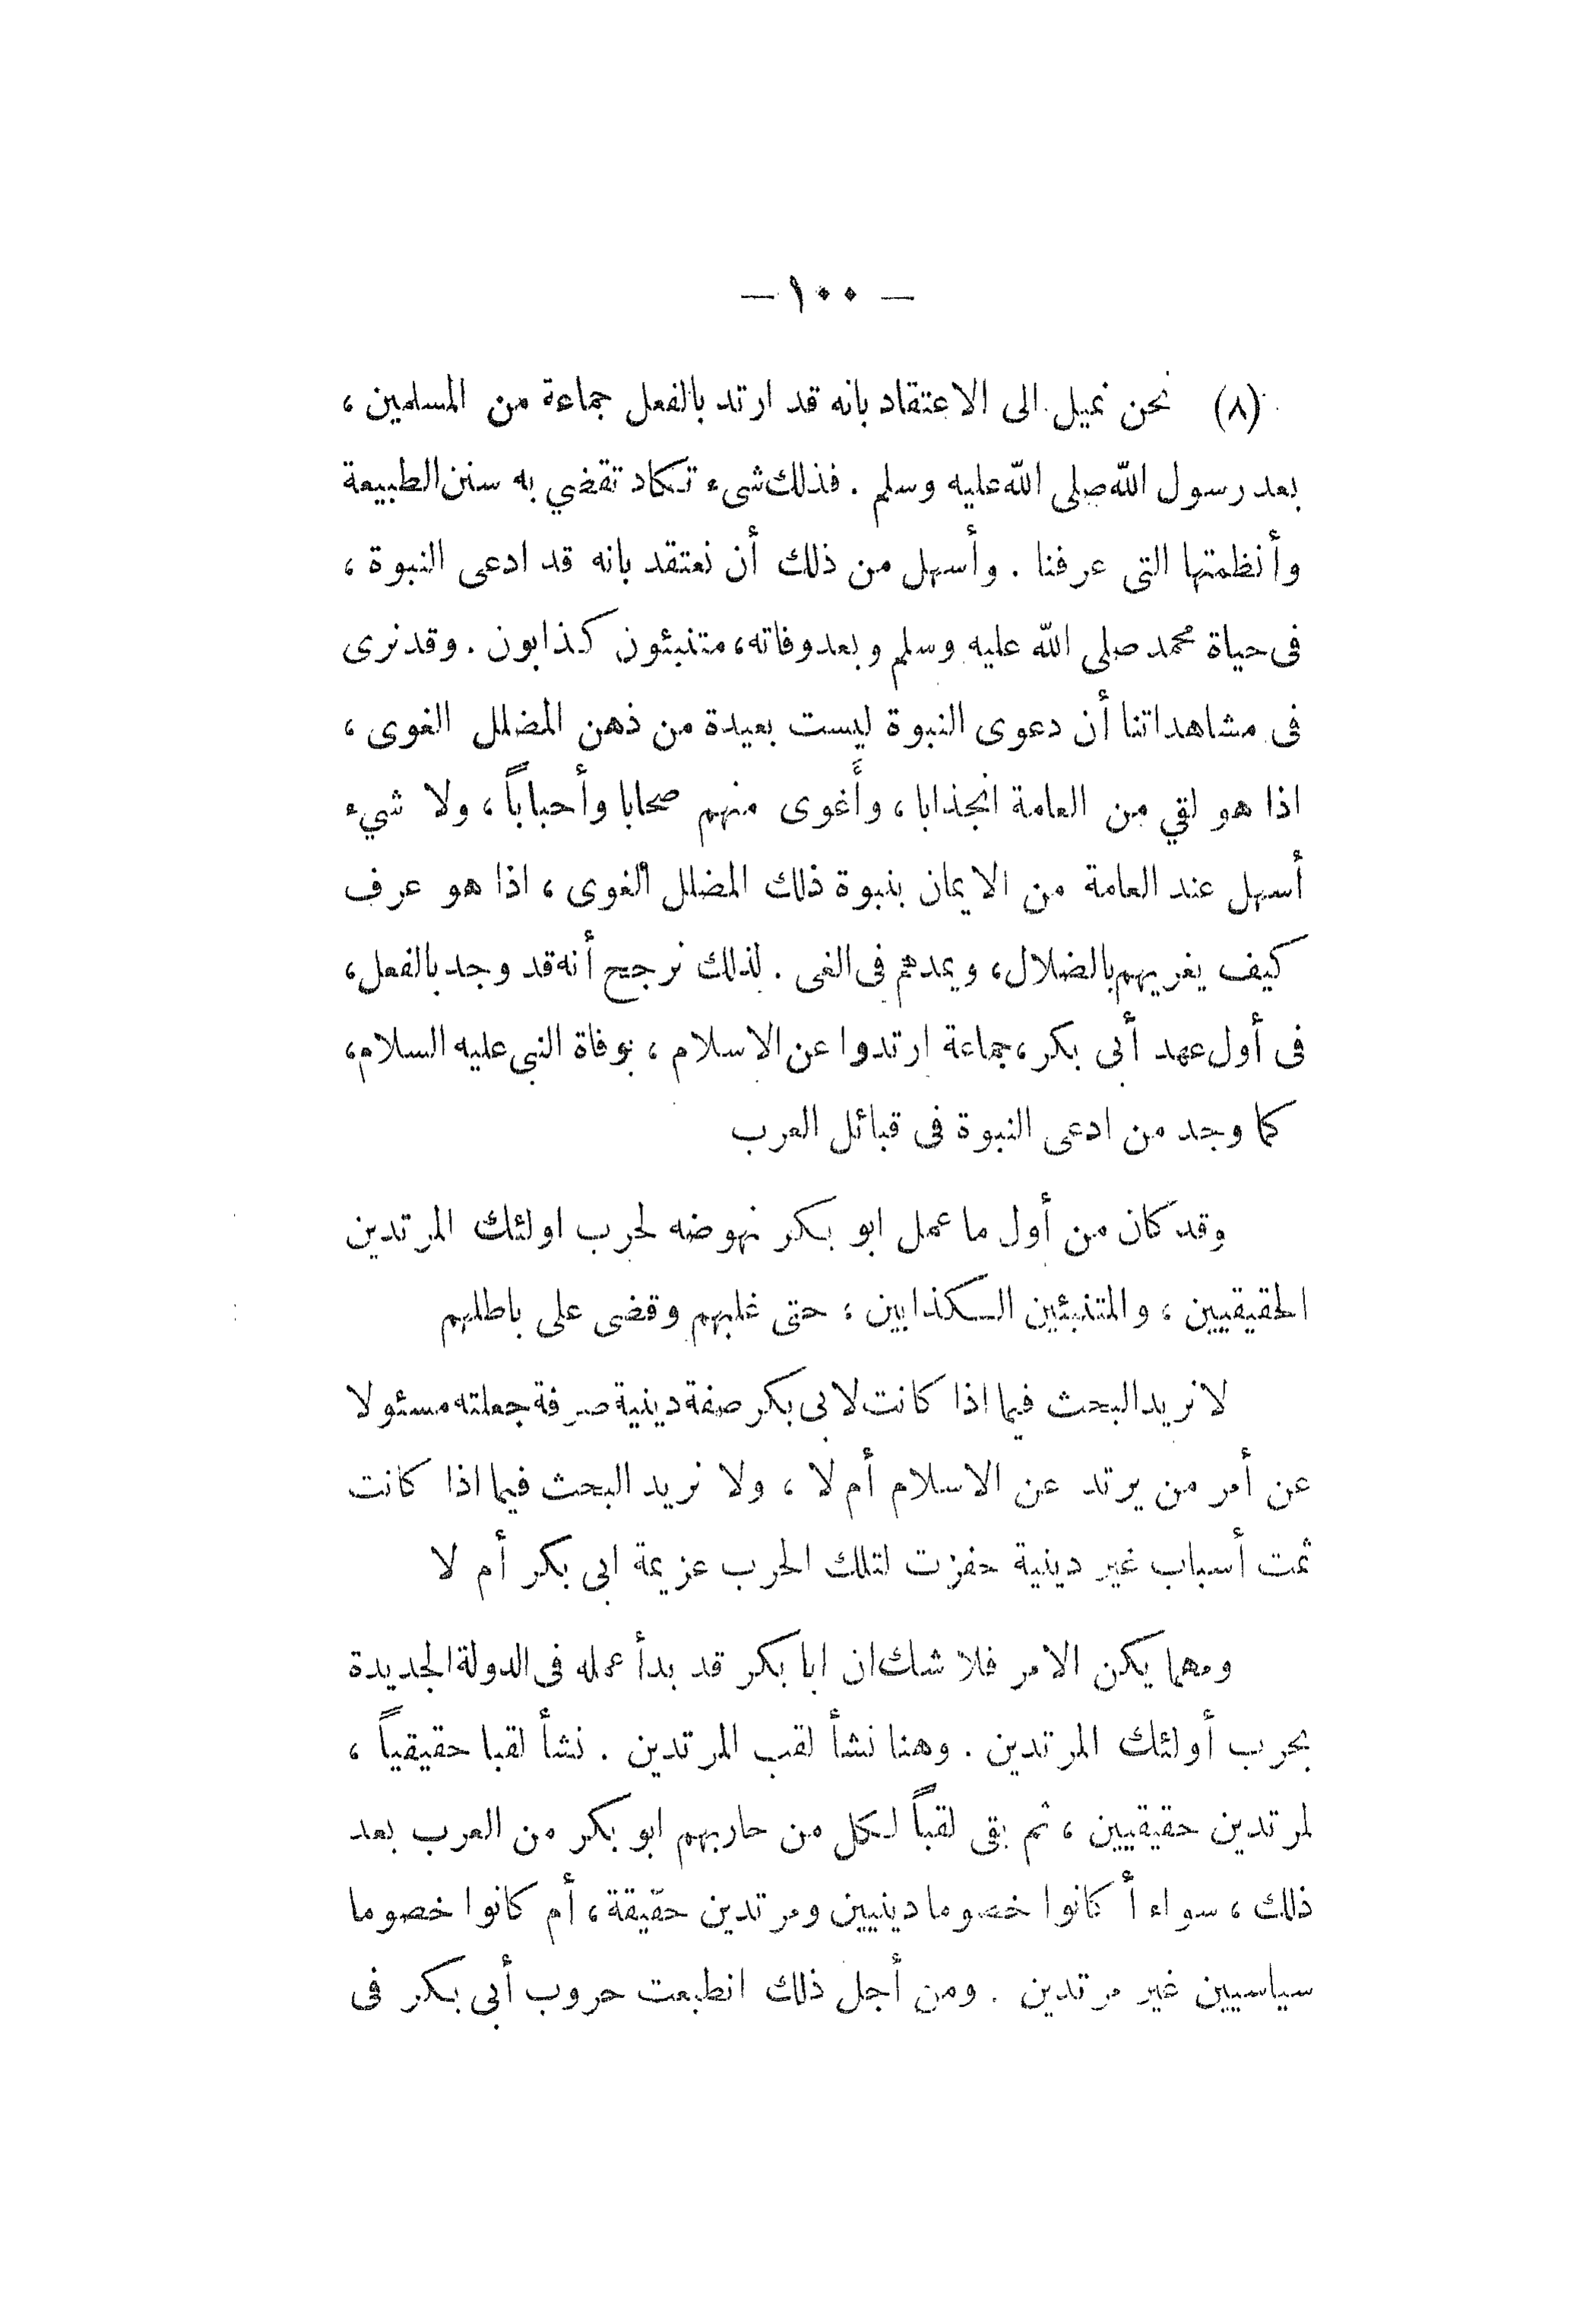 — ١٠٠ —
(٨) نحن نميل الى الاعتقاد بانه قد ارتد بالفعل جماعة من المسلمين ،
بعد رسول الله صلى الله عليه وسلم . فذلك شىء تكاد تقضي به سنن الطبيعة
وأنظمتها التى عرفنا . وأسهل من ذلك أن نعتقد بانه قد ادعى النبوة ،
فى حياة محمد صلى الله عليه وسلم وبعد وفاته ، متنبئون كذابون . وقد نرى
فى مشاهداتنا أن دعوى النبوة ليست بعيدة من ذهن المضلل الغوى ،
اذا هو لقي من العامة انجذابا ، وأَغوى منهم صحابا وأحباباً ، ولا شيء
أسهل عند العامة من الايمان بنبوة ذلك المضلل الغوى ، اذا هو عرف
كيف يغريهم بالضلال ، ويمدهم فى الغى . لذلك نرجح أنه قد وجد بالفعل ،
فى أول عهد أبى بكر ، جماعة ارتدوا عن الاسلام ، بوفاة النبى عليه السلام ،
كما وجد من ادعى النبوة فى قبائل العرب
وقد كان من أول ما عمل ابو بكر نهوضه لحرب اولئك المرتدين
الحقيقيين ، والمتنبئين الكذابين ، حتى غلبهم وقضى على باطلهم
لا نريد البحث فيما اذا كانت لابى بكر صفة دينية صرفة جعلته مسئولا
عن أمر من يرتد عن الاسلام أم لا ، ولا نريد البحث فيما اذا كانت
ثمت أسباب غير دينية حفزت لتلك الحرب عزيمة ابى بكر أم لا
ومهما يكن الامر فلا شك ان ابا بكر قد بدأ عمله فى الدولة الجديدة
بحرب أولئك المرتدين . وهنا نشأ لقب المرتدين . نشأ لقبا حقيقياً ،
لمرتدين حقيقيين ، ثم بقى لقباً لكل من حاربهم ابو بكر من العرب بعد
ذلك ، سواء أكانوا خصوما دينيين ومرتدين حقيقة ، أم كانوا خصوما
سياسيين غير مرتدين . ومن أجل ذلك انطبعت حروب أبى بكر فى